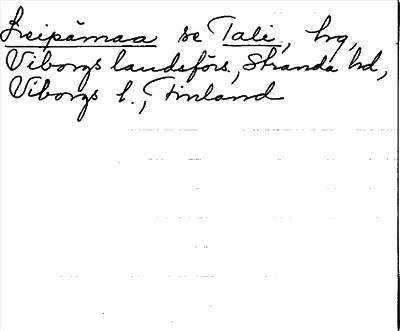 Liipämaa se Tali, hrg,
Viborgs landsförs., Stranda hd,
Viborgs l., Finland